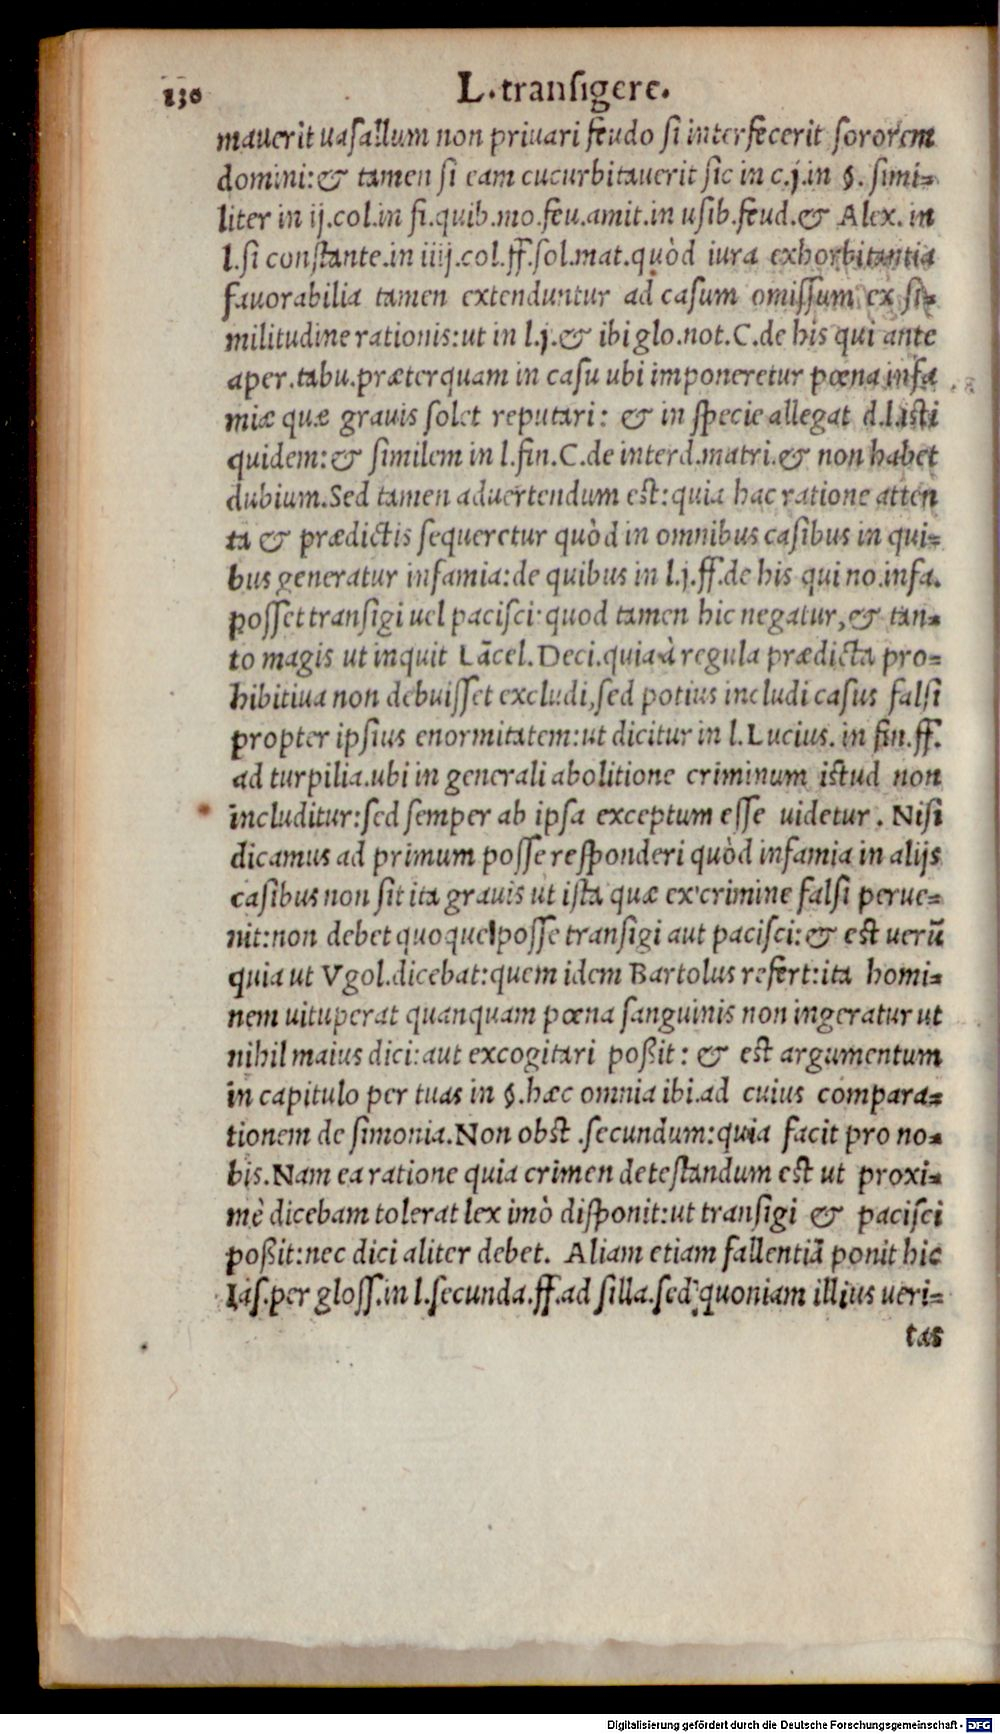 130
L. transigere.
mauerit uasallum non priuari feudo si interfecerit sororem
domini: & tamen si eam cucurbitauerit sic in c.j.in §. simi-
liter in ij.col.in fi.quib.mo.feu.amit.in usib.feud.& Alex. in
l.si constante.in iiij.col.ff.sol.mat.quòd iura exhorbitantia
fauorabilia tamen extenduntur ad casum omissum ex si-
militudine rationis:ut in l.j.& ibi glo.not.C.de his qui ante
aper.tabu.præterquam in casu ubi imponeretur pœna infa
miæ quæ grauis solet reputari: & in specie allegat d.l.isti
quidem: & similem in l.fin.C.de interd.matri.& non habet
dubium.Sed tamen aduertendum est:quia hac ratione atten
ta & prædictis sequeretur quòd in omnibus casibus in qui-
bus generatur infamia:de quibus in l.j.ff.de his qui no.infa.
posset transigi uel pacisci:quod tamen hic negatur,& tan-
to magis ut inquit Lãcel.Deci.quia à regula prædicta pro-
hibitiua non debuisset excludi,sed potius includi casus falsi
propter ipsius enormitatem:ut dicitur in l.Lucius. in fin.ff.
ad turpilia.ubi in generali abolitione criminum istud non
includitur:sed semper ab ipsa exceptum esse uidetur. Nisi
dicamus ad primum posse responderi quòd infamia in alijs
casibus non sit ita grauis ut ista quæ ex crimine falsi perue-
nit:non debet quoque posse transigi aut pacisci:& est uerũ
quia ut Vgol.dicebat:quem idem Bartolus refert:ita homi-
nem uituperat quanquam pœna sanguinis non ingeratur ut
nihil maius dici:aut excogitari poßit: & est argumentum
in capitulo per tuas in §.hæc omnia ibi.ad cuius compara-
tionem de simonia.Non obst .secundum:quia facit pro no-
bis.Nam ea ratione quia crimen detestandum est ut proxi-
mè dicebam tolerat lex imò disponit:ut transigi & pacisci
poßit:nec dici aliter debet. Aliam etiam fallentiã ponit hic
Ias.per gloss.in l.secunda.ff.ad silla.sed quoniam illius ueri-
tas
Digitalisierung gefördert durch die Deutsche Forschungsgemeinschaft - DFG